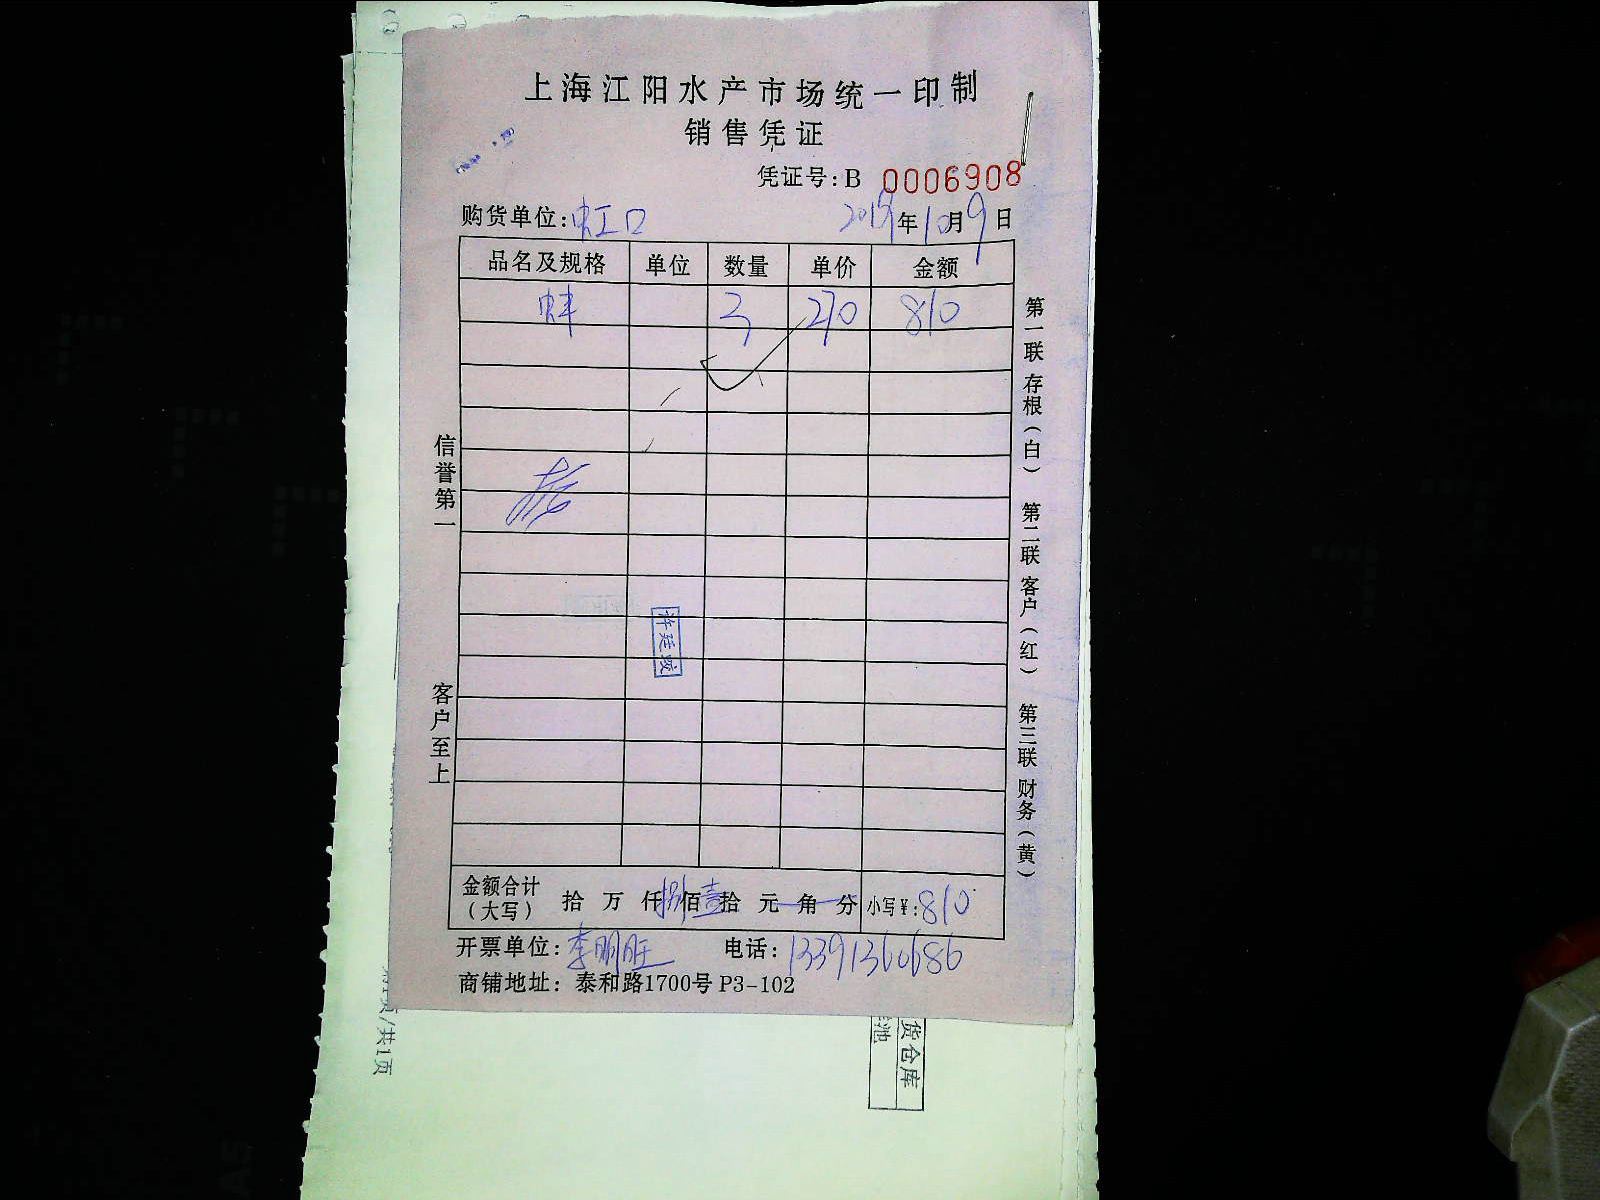 上海江阳水产市场统一印制
销售凭证
凭证号: B 0006908
购货单位: 虹口 2019年10月9日
品名及规格 单位 数量 单价 金额
蚌 3 270 810
信誉第一
客户至上
第一联 存根（白） 第二联 客户（红） 第三联 财务（黄）
金额合计（大写） 拾 万 仟 捌佰 壹拾 元 角 分 小写¥: 810
开票单位: 李明旺 电话: 13391360686
商铺地址: 泰和路1700号 P3-102
货仓库
共1页